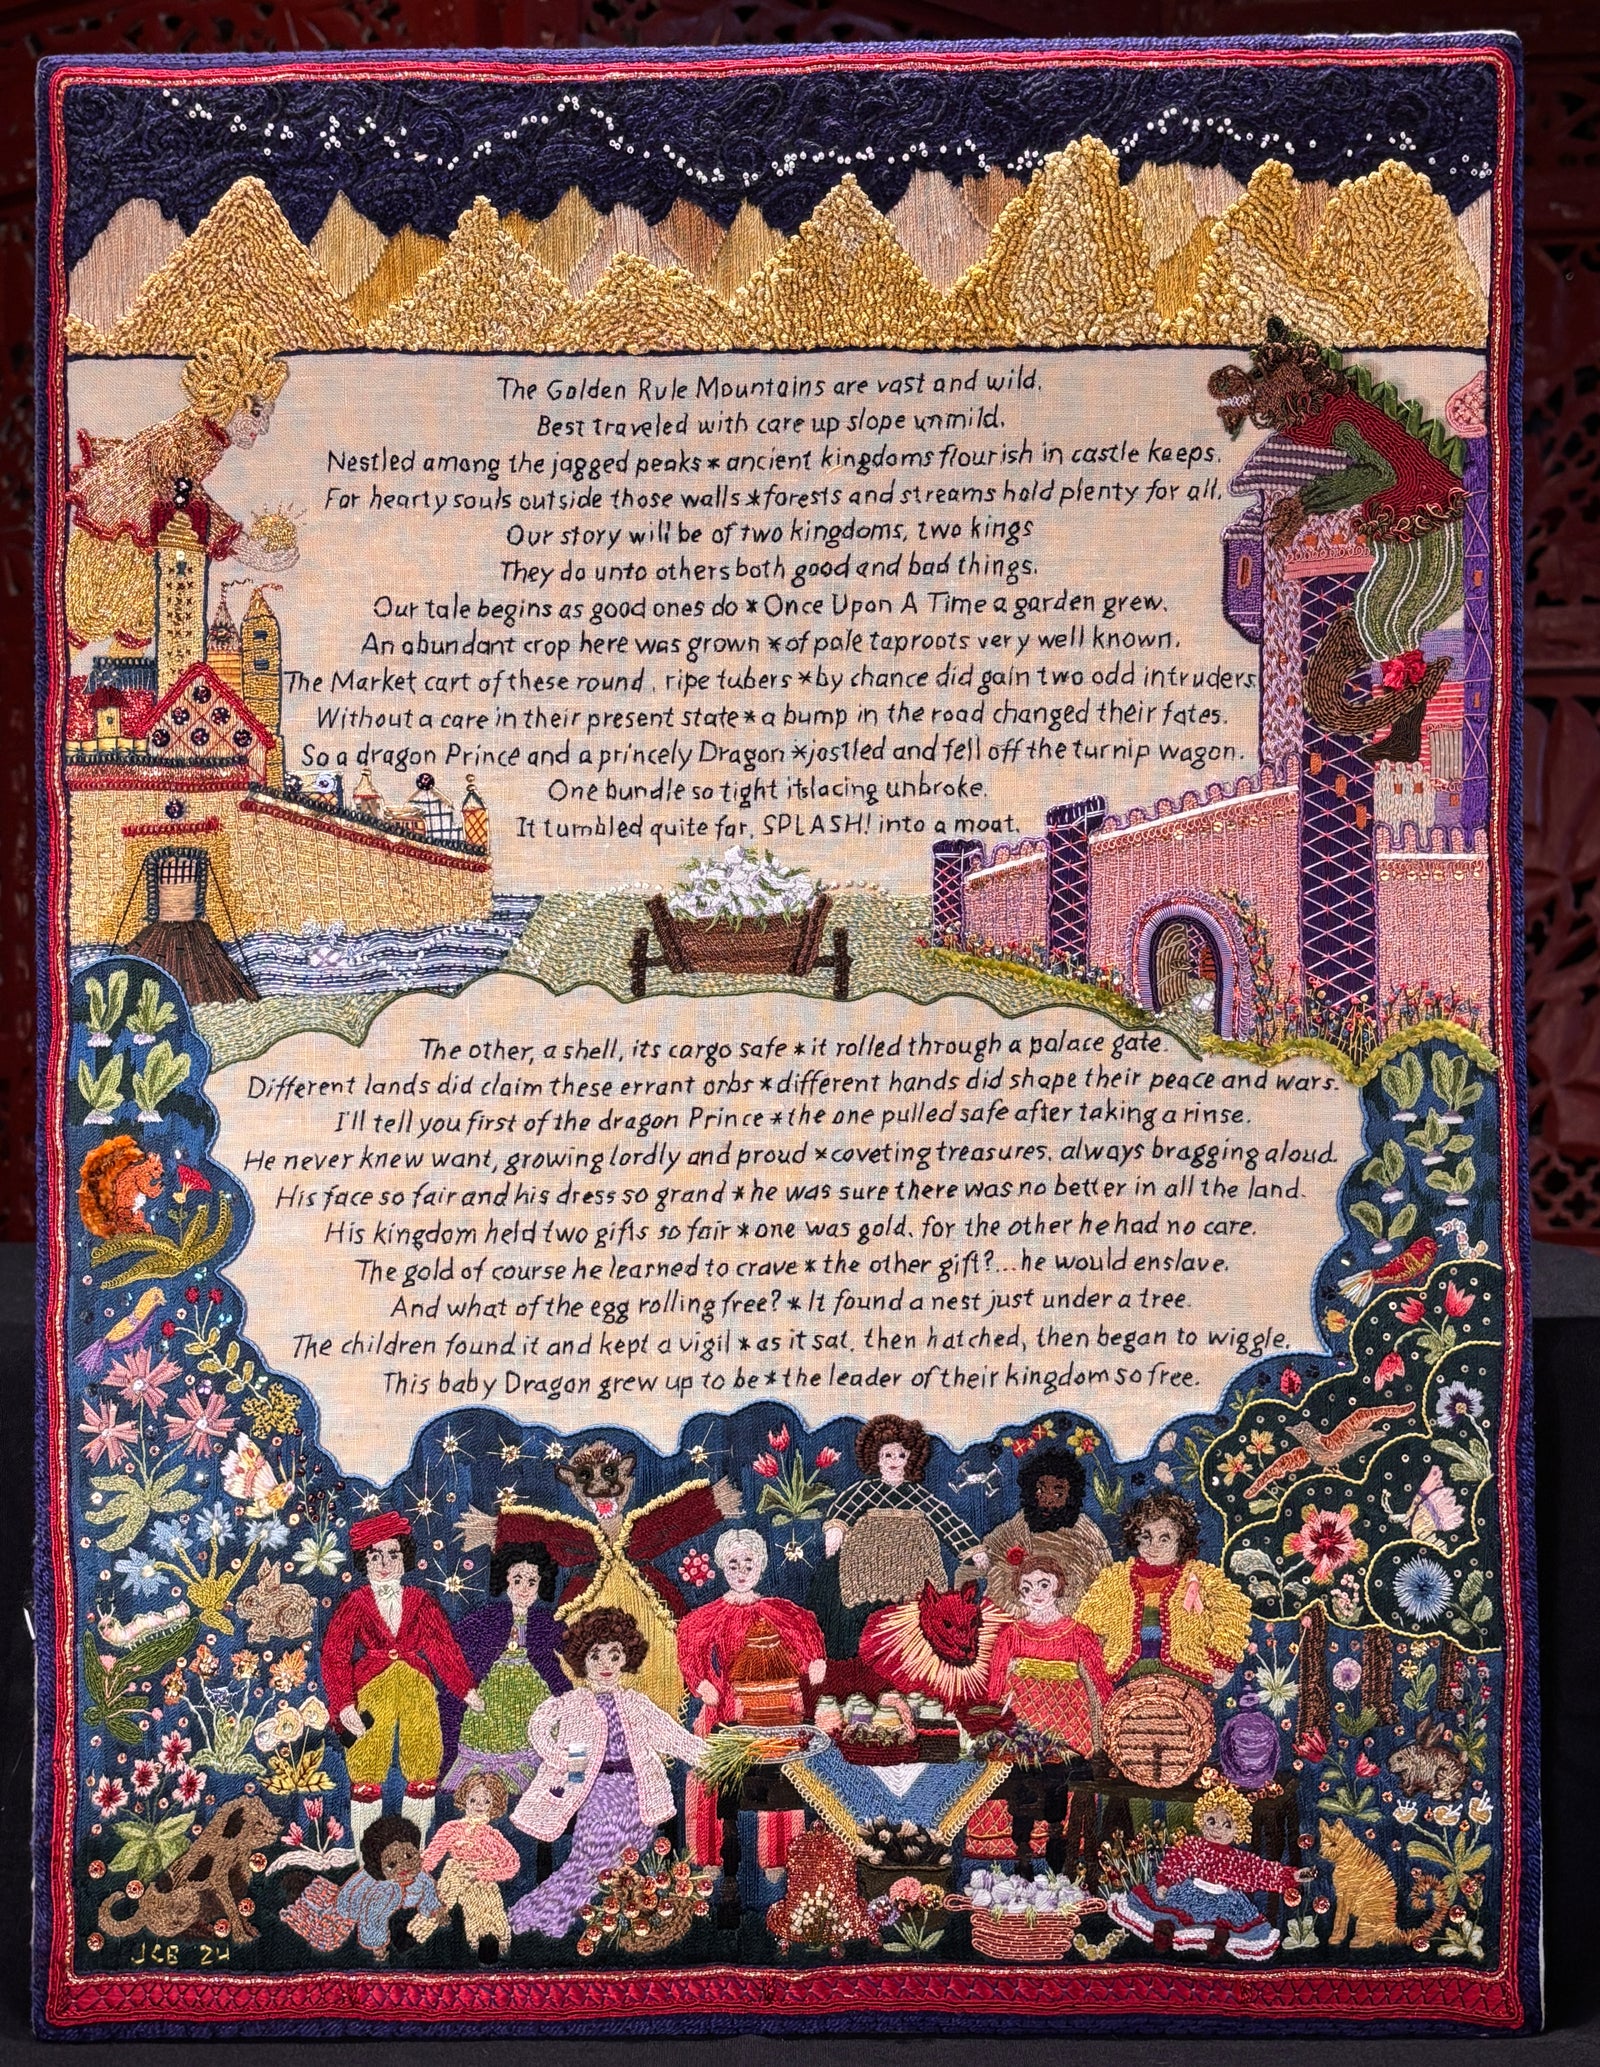 The Golden Rule Mountains are vast and wild.
Best traveled with care up slope unmild.
Nestled among the jagged peaks * ancient kingdoms flourish in castle keeps.
For hearty souls outside those walls * forests and streams hold plenty for all.
Our story will be of two kingdoms, two kings
They do unto others both good and bad things.
Our tale begins as good ones do * Once Upon A Time a garden grew.
An abundant crop here was grown * of pale taproots very well known.
The Market cart of these round, ripe tubers * by chance did gain two odd intruders
Without a care in their present state * a bump in the road changed their fates.
So a dragon Prince and a princely Dragon * jostled and fell off the turnip wagon.
One bundle so tight its lacing unbroke.
It tumbled quite far, SPLASH! into a moat.
The other, a shell, its cargo safe * it rolled through a palace gate.
Different lands did claim these errant orbs * different hands did shape their peace and wars.
I'll tell you first of the dragon Prince * the one pulled safe after taking a rinse.
He never knew want, growing lordly and proud * coveting treasures, always bragging aloud.
His face so fair and his dress so grand * he was sure there was no better in all the land.
His kingdom held two gifts so fair * one was gold, for the other he had no care.
The gold of course he learned to crave * the other gift?...he would enslave.
And what of the egg rolling free? * It found a nest just under a tree.
The children found it and kept a vigil * as it sat, then hatched, then began to wiggle.
This baby Dragon grew up to be * the leader of their kingdom so free.
JCB '24